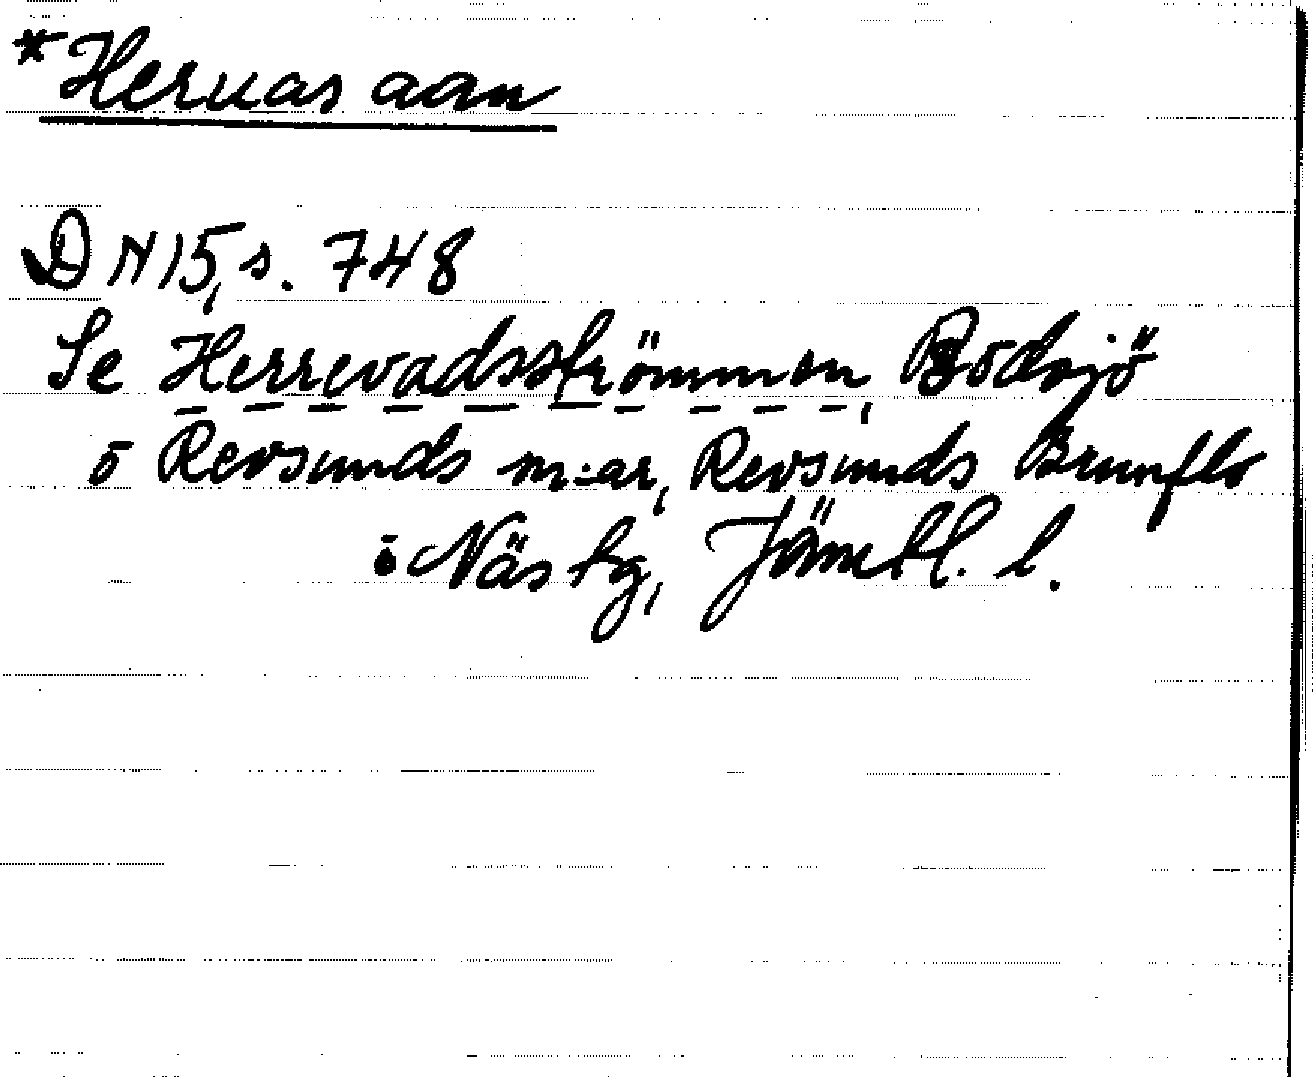 *Heruas aan
DN 15, s. 748
Se Herrevadsströmmen, Bodsjö
o Revsunds m:ar, Revsunds Brunflo
o Näs tg, Jämtl. l.